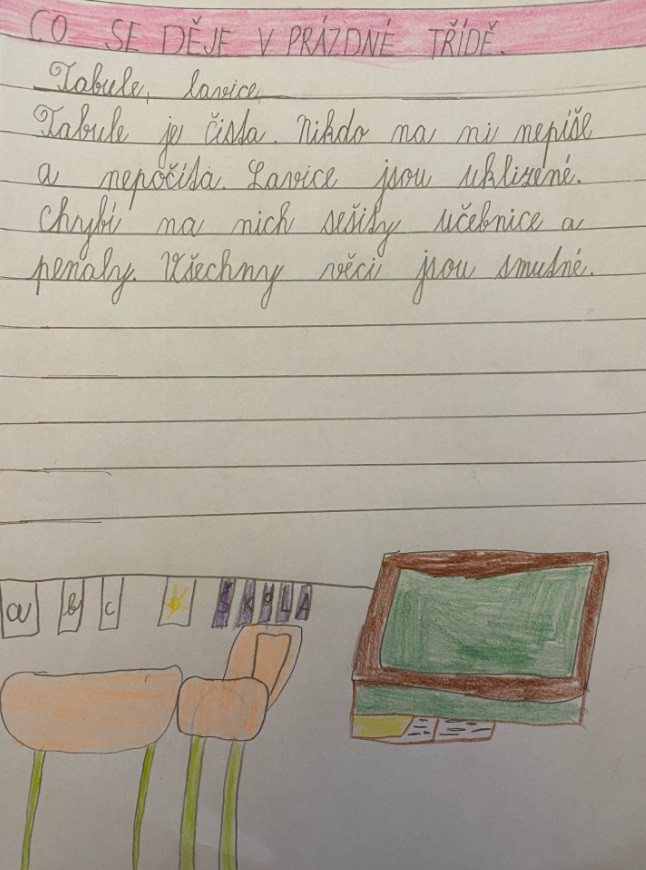 CO SE DĚJE V PRÁZDNÉ TŘÍDĚ.
Tabule, lavice,
Tabule je čistá. Nikdo na ni nepíše
a nepočítá. Lavice jsou uklizené.
Chybí na nich sešity učebnice a
penály. Všechny věci jsou smutné.
a b c ŠKOLA